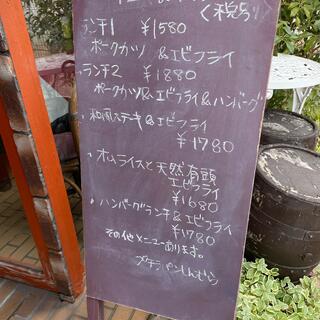 ＜税込＞
・ランチ1 ￥1580
ポークカツ &エビフライ
・ランチ2 ￥1880
ポークカツ&エビフライ&ハンバーグ
・和風ステーキ&エビフライ
￥1780
・オムライスと天然有頭
エビフライ
￥1680
・ハンバーグランチ&エビフライ
￥1780
その他メニューあります。